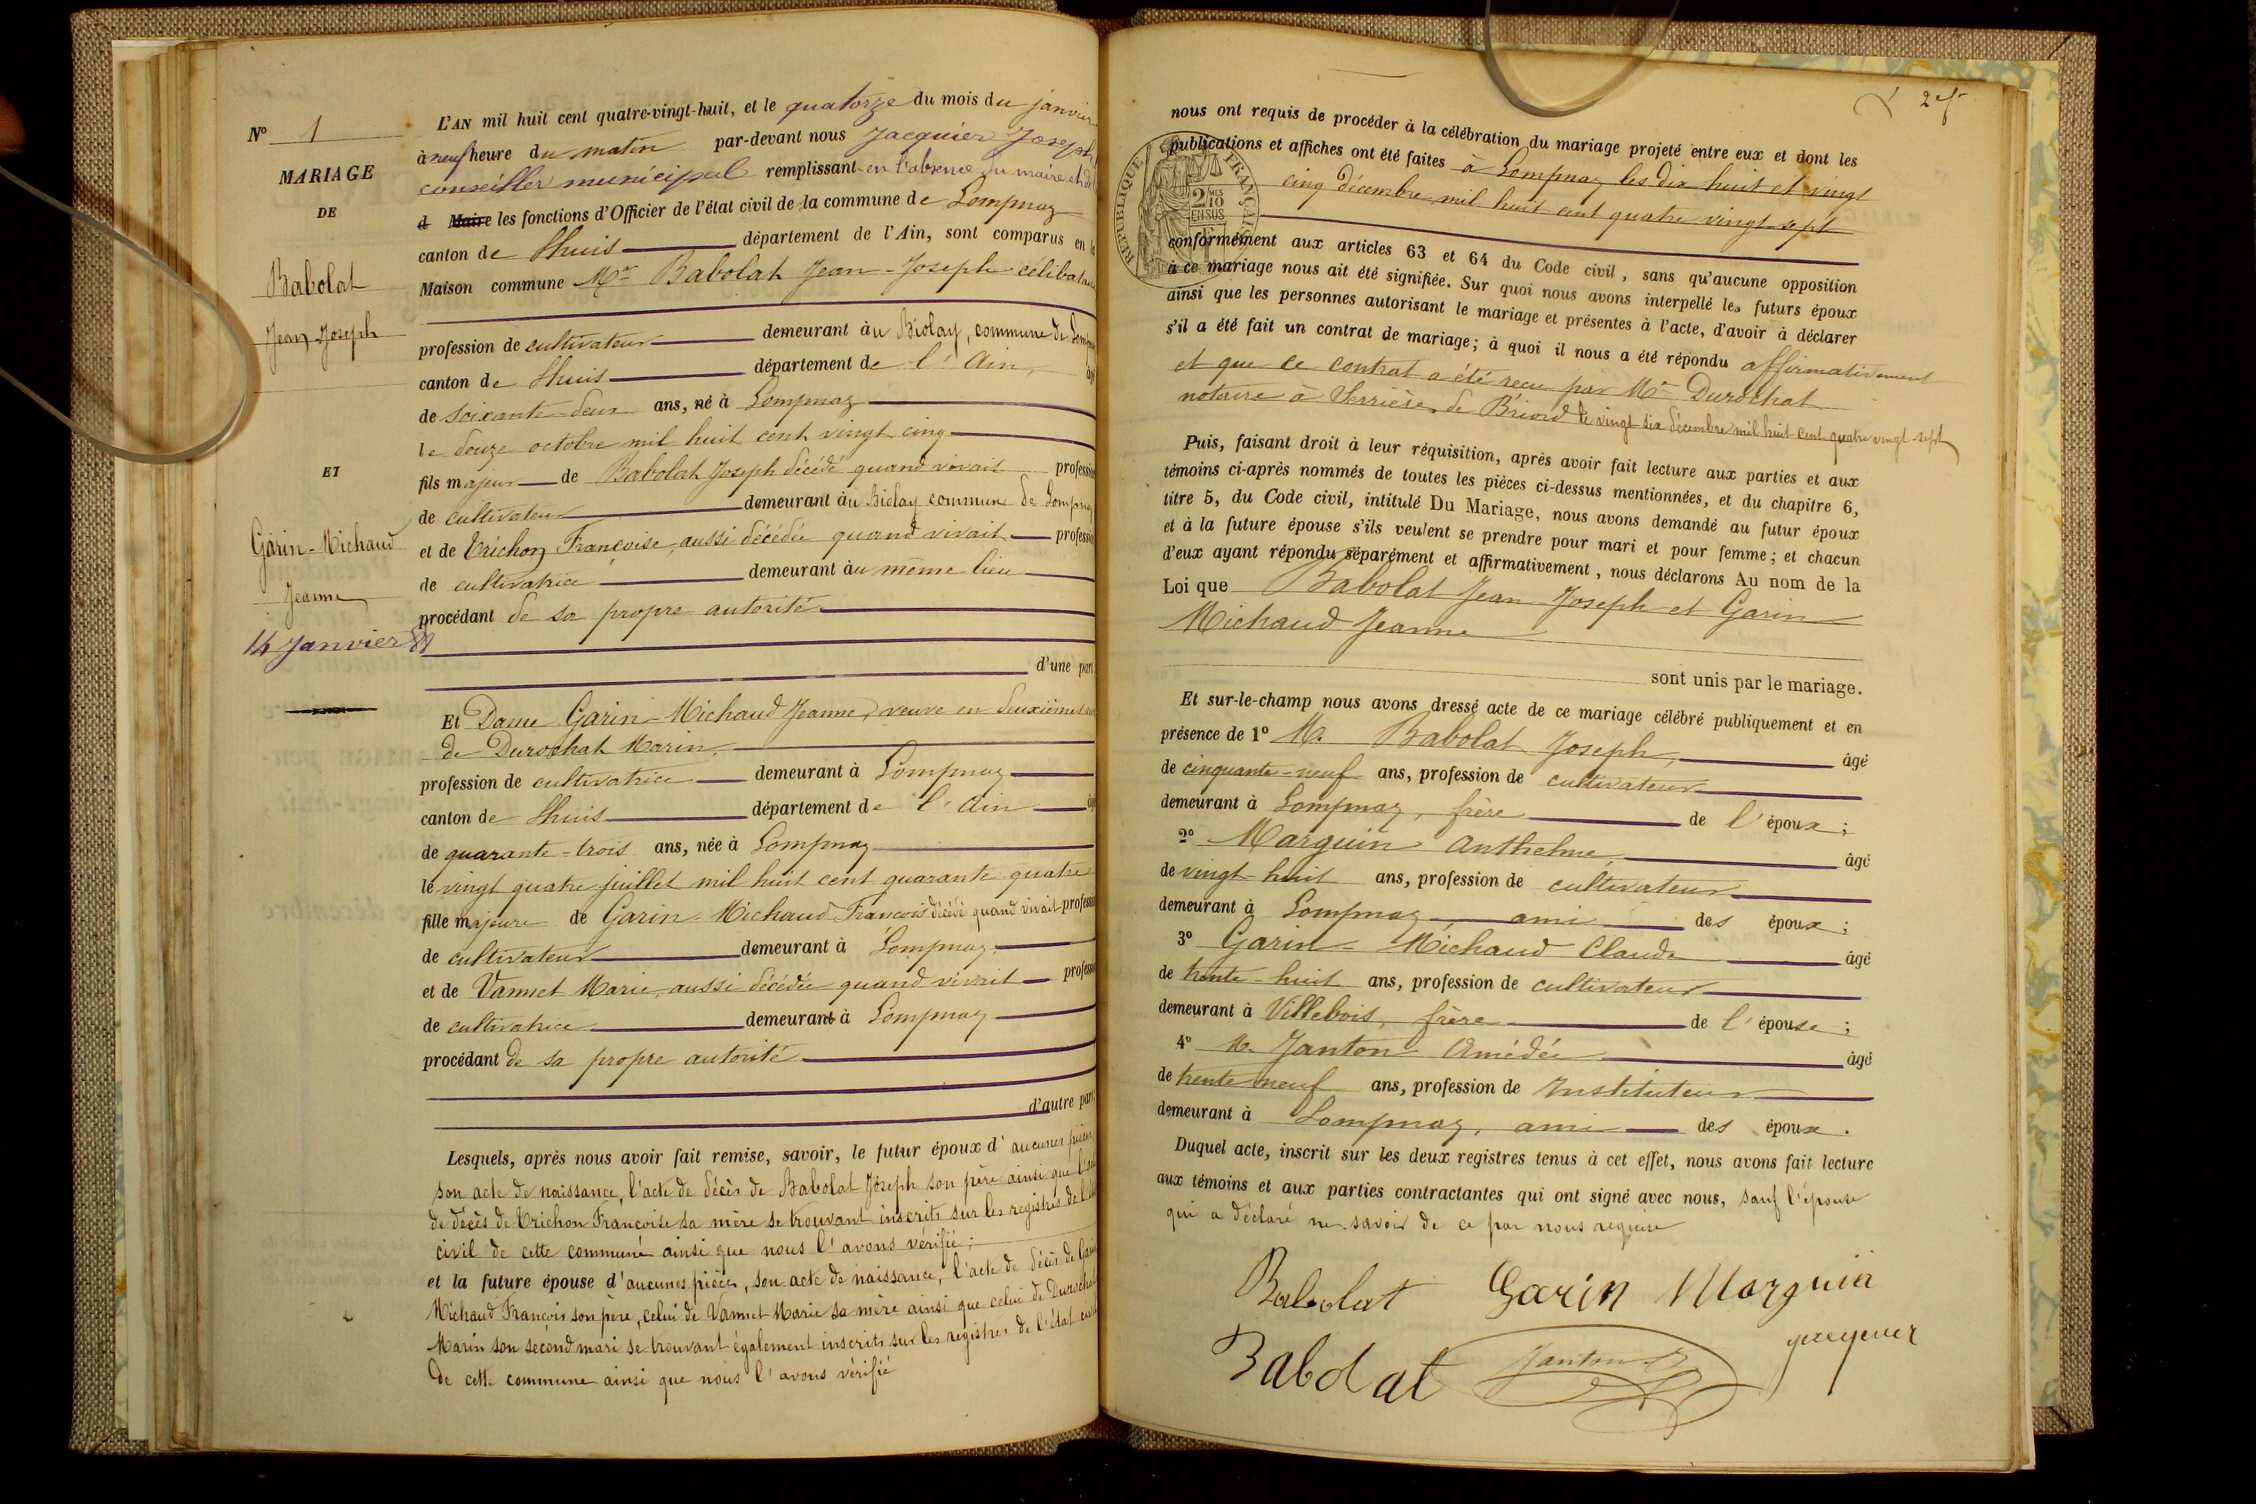 N° 1
MARIAGE
DE
Babolat
Jean Joseph
ET
Garin-Michaud
Jeanne
14 Janvier 88
L'AN mil huit cent quatre-vingt-huit, et le quatorze du mois du janvier
à neuf heure du matin par-devant nous Jacquier Joseph
conseiller municipal remplissant en l'absence du maire et de
d Maire les fonctions d'Officier de l'état civil de la commune de Lompnaz
canton de Lhuis département de l'Ain, sont comparus en la
Maison commune Mr Babolat Jean-Joseph célibataire
profession de cultivateur demeurant àu Biolay, commune de Lompnaz
canton de Lhuis département de l'Ain, âgé
de soixante deux ans, né à Lompnaz
le douze octobre mil huit cent vingt cinq
fils majeur de Babolat Joseph décédé quand vivait profession
de cultivateur demeurant àu Biolay commune de Lompnaz
et de Trichon Françoise, aussi décédée quand vivait profession
de cultivatrice demeurant àu même lieu
procédant de sa propre autorité
d'une part
Et Dame Garin-Michaud Jeanne, veuve en deuxièmes
de Durochat Marin,
profession de cultivatrice demeurant à Lompnaz
canton de Lhuis département de l'Ain âgé
de quarante-trois ans, née à Lompnaz
le vingt quatre juillet mil huit cent quarante quatre
fille majeure de Garin-Michaud François décédé quand vivait profession
de cultivateur demeurant à Lompnaz
et de Vannet Marie, aussi décédée quand vivait profession
de cultivatrice demeurant à Lompnaz
procédant de sa propre autorité
d'autre part
Lesquels, après nous avoir fait remise, savoir, le futur époux d'aucunes pièces,
son acte de naissance, l'acte de décès de Babolat Joseph son père ainsi que l'acte
de décès de Trichon Françoise sa mère se trouvant inscrits sur les registres de l'état
civil de cette commune ainsi que nous l'avons vérifié ;
et la future épouse d'aucunes pièces, son acte de naissance, l'acte de décès de Garin
Michaud François son père, celui de Vannet Marie sa mère ainsi que celui de Durochat
Marin son second mari se trouvant également inscrits sur les registres de l'état civil
de cette commune ainsi que nous l'avons vérifié
2
RÉPUBLIQUE FRANÇAISE
2 MES
10
EN SUS
nous ont requis de procéder à la célébration du mariage projeté entre eux et dont les
publications et affiches ont été faites à Lompnaz les dix huit et vingt
cinq décembre mil huit cent quatre vingt-sept
conformément aux articles 63 et 64 du Code civil, sans qu'aucune opposition
à ce mariage nous ait été signifiée. Sur quoi nous avons interpellé les futurs époux
ainsi que les personnes autorisant le mariage et présentes à l'acte, d'avoir à déclarer
s'il a été fait un contrat de mariage; à quoi il nous a été répondu affirmativement
et que ce contrat a été reçu par Me Durochat
notaire à Serrières de Briord le vingt six décembre mil huit cent quatre vingt sept
Puis, faisant droit à leur réquisition, après avoir fait lecture aux parties et aux
témoins ci-après nommés de toutes les pièces ci-dessus mentionnées, et du chapitre 6,
titre 5, du Code civil, intitulé Du Mariage, nous avons demandé au futur époux
et à la future épouse s'ils veulent se prendre pour mari et pour femme; et chacun
d'eux ayant répondu séparément et affirmativement, nous déclarons Au nom de la
Loi que Babolat Jean Joseph et Garin
Michaud Jeanne
sont unis par le mariage.
Et sur-le-champ nous avons dressé acte de ce mariage célébré publiquement et en
présence de 1° M. Babolat Joseph, âgé
de cinquante-neuf ans, profession de cultivateur
demeurant à Lompnaz, frère de l'époux;
2° Marguin Anthelme, âgé
de vingt-huit ans, profession de cultivateur
demeurant à Lompnaz ami des époux;
3° Garin-Michaud Claude âgé
de trente-huit ans, profession de cultivateur
demeurant à Villebois, frère de l'épouse;
4° M. Janton Amédée âgé
de trente neuf ans, profession de Instituteur
demeurant à Lompnaz, ami des époux.
Duquel acte, inscrit sur les deux registres tenus à cet effet, nous avons fait lecture
aux témoins et aux parties contractantes qui ont signé avec nous, sauf l'épouse
qui a déclaré ne savoir de ce par nous requise
Babolat Garin Marguin
Babolat Janton Jacquier